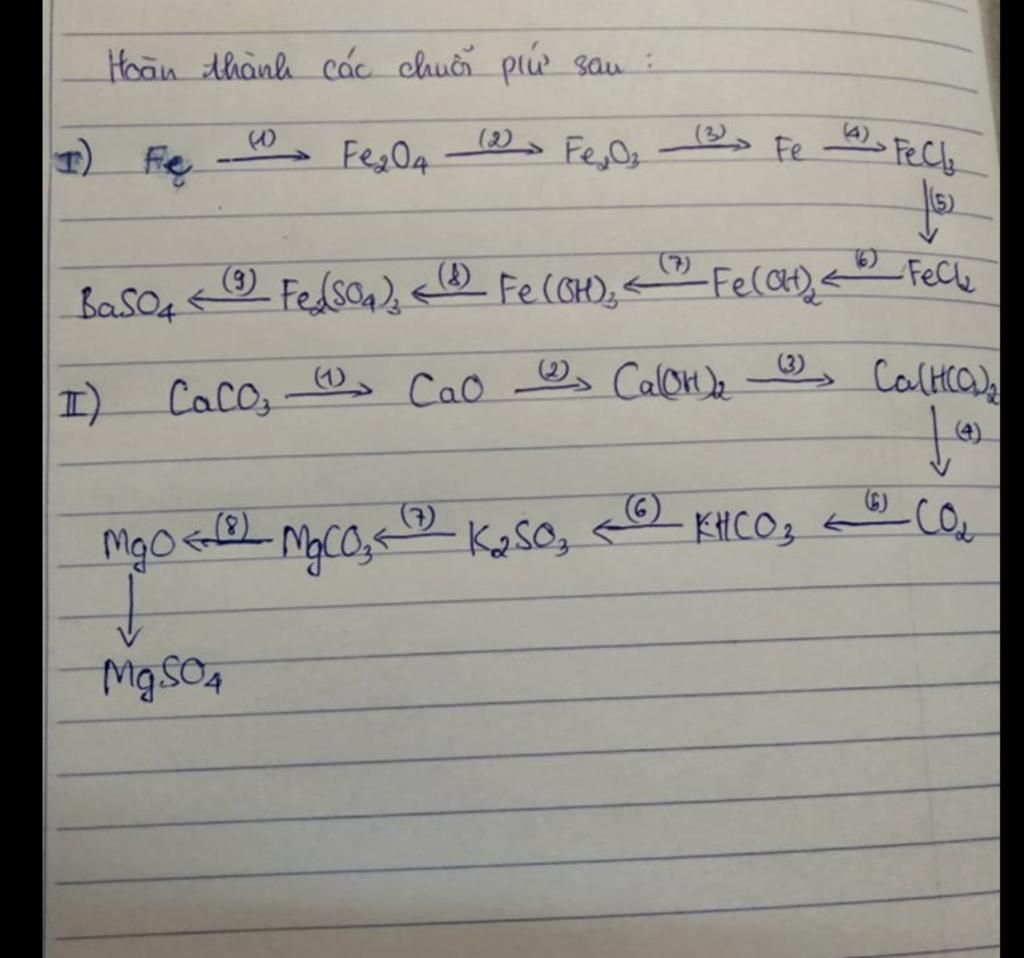 Hoàn thành các chuỗi pứ sau :
I) Fe (1)→ Fe₂O₄ (2)→ Fe₂O₃ (3)→ Fe (4)→ FeCl₃
↓(5)
BaSO₄ ←(9) Fe₂(SO₄)₃ ←(8) Fe(OH)₃ ←(7) Fe(OH)₂ ←(6) FeCl₂
II) CaCO₃ (1)→ CaO (2)→ Ca(OH)₂ (3)→ Ca(HCO₃)₂
↓(4)
MgO ←(8) MgCO₃ ←(7) K₂SO₃ ←(6) KHCO₃ ←(5) CO₂
↓
MgSO₄